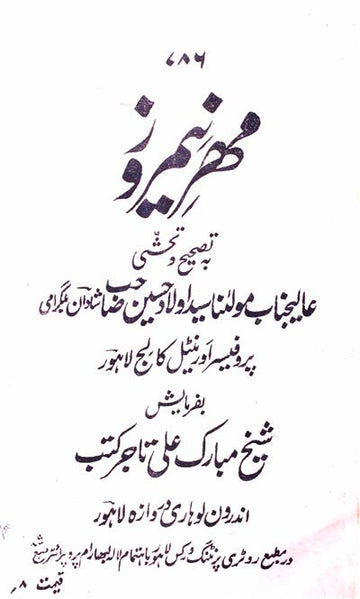 ۷۸۶
مہر نیمروز
بہ تصحیح و تحشی
عالیجناب مولٰنا سید اولاد حسین صاحب شاداں بلگرامی
پروفیسر اورنیٹل کالج لاہور
بفرمایش
شیخ مبارک علی تاجر کتب
اندرون لوہاری دروازہ لاہور
در مطبع روٹری پرنٹنگ ورکس لاہور باہتمام لالہ بھارام پروپرائٹر طبع شد
قیمت ۸ ر